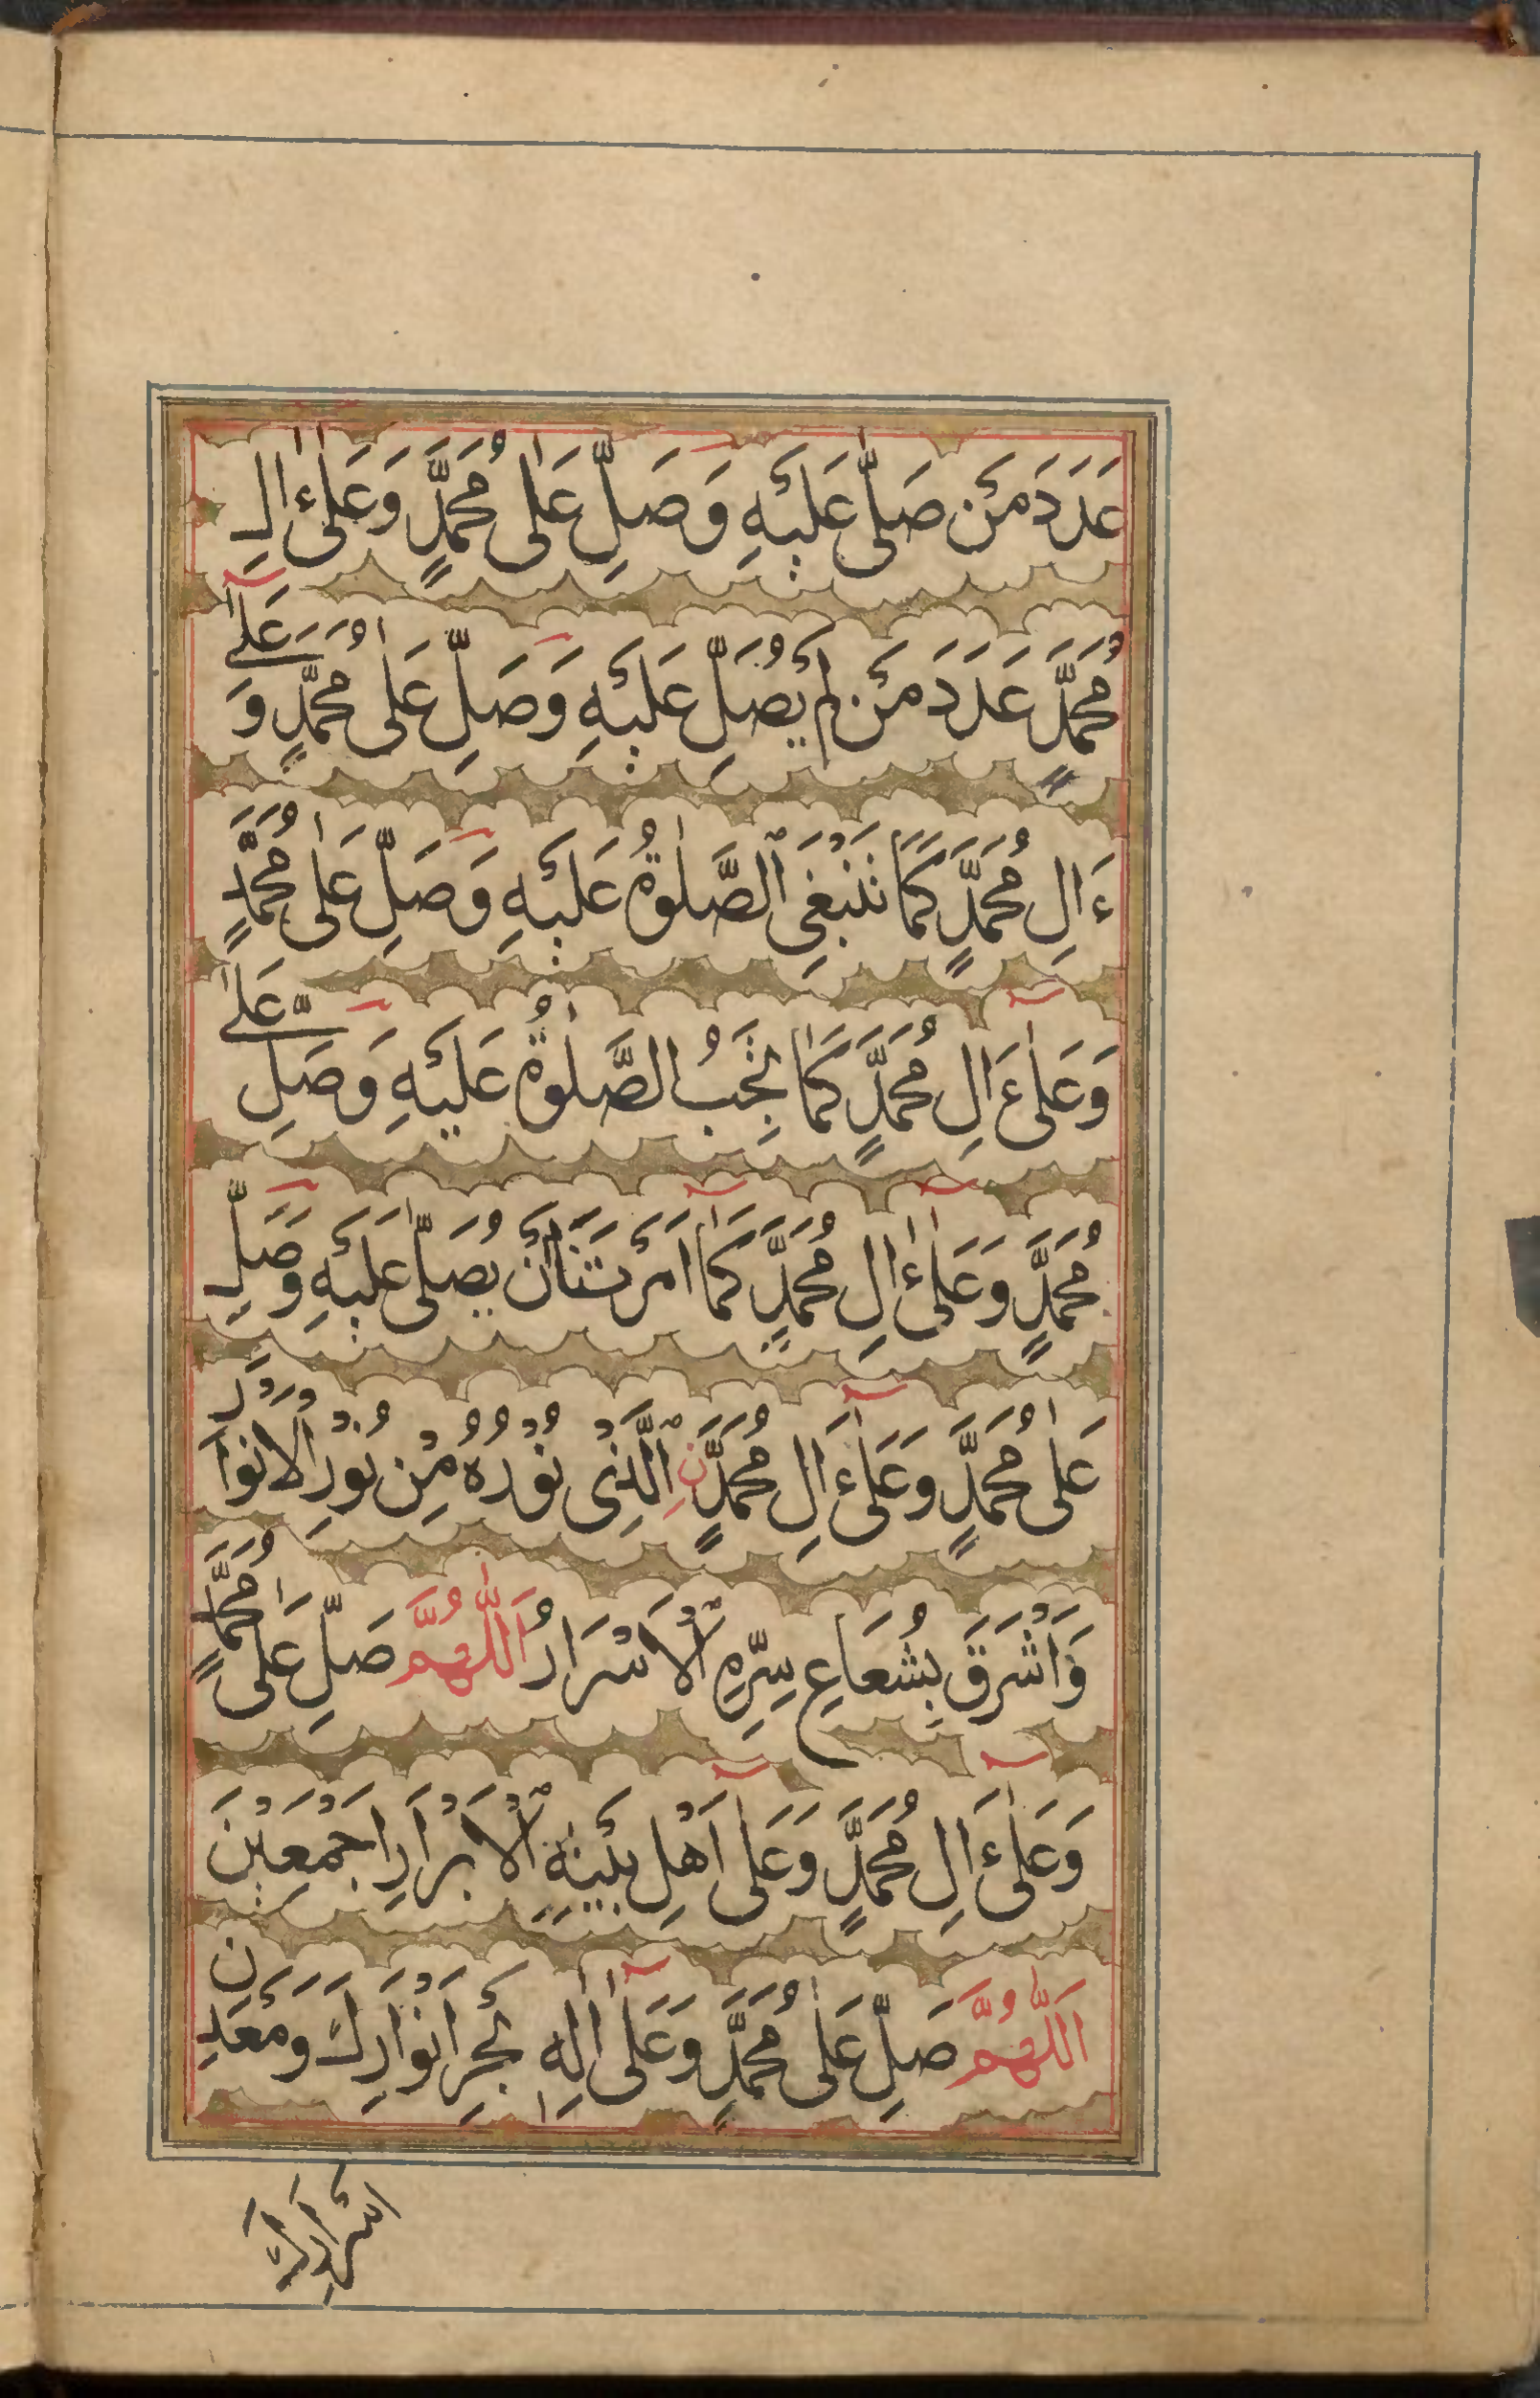 عَدَدَ مَنْ صَلّٰى عَلَيْهِ وَصَلِّ عَلٰى مُحَمَّدٍ وَعَلٰى ءَالِ
مُحَمَّدٍ عَدَدَ مَنْ لَمْ يُصَلِّ عَلَيْهِ وَصَلِّ عَلٰى مُحَمَّدٍ وَعَلٰى
ءَالِ مُحَمَّدٍ كَمَا تَنْبَغِى الصَّلٰوةُ عَلَيْهِ وَصَلِّ عَلٰى مُحَمَّدٍ
وَعَلٰى ءَالِ مُحَمَّدٍ كَمَا تَجِبُ الصَّلٰوةُ عَلَيْهِ وَصَلِّ عَلٰى
مُحَمَّدٍ وَعَلٰى ءَالِ مُحَمَّدٍ كَمَا اَمَرْتَنَا اَنْ يُصَلّٰى عَلَيْهِ وَصَلِّ
عَلٰى مُحَمَّدٍ وَعَلٰى ءَالِ مُحَمَّدٍ نِ الَّذِى نُوْرُهُ مِنْ نُوْرِ الْاَنْوَارِ
وَاَشْرَقَ بِشُعَاعِ سِرِّهِ الْاَسْرَارُ اَللّٰهُمَّ صَلِّ عَلٰى مُحَمَّدٍ
وَعَلٰى ءَالِ مُحَمَّدٍ وَعَلٰى اَهْلِ بَيْتِهِ الْاَبْرَارِ اَجْمَعِيْنَ
اَللّٰهُمَّ صَلِّ عَلٰى مُحَمَّدٍ وَعَلٰى اٰلِهٖ بَحْرِ اَنْوَارِكَ وَمَعْدِنِ
اَسْرَارِكَ